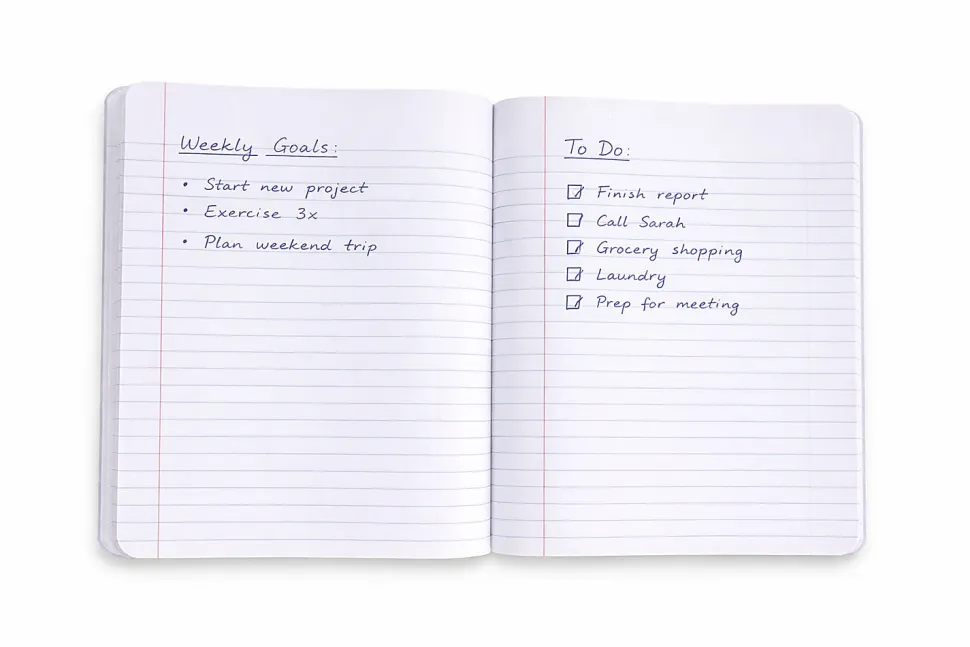 Weekly Goals:
• Start new project
• Exercise 3x
• Plan weekend trip
To Do:
☑ Finish report
☑ Call Sarah
☑ Grocery shopping
☑ Laundry
☑ Prep for meeting